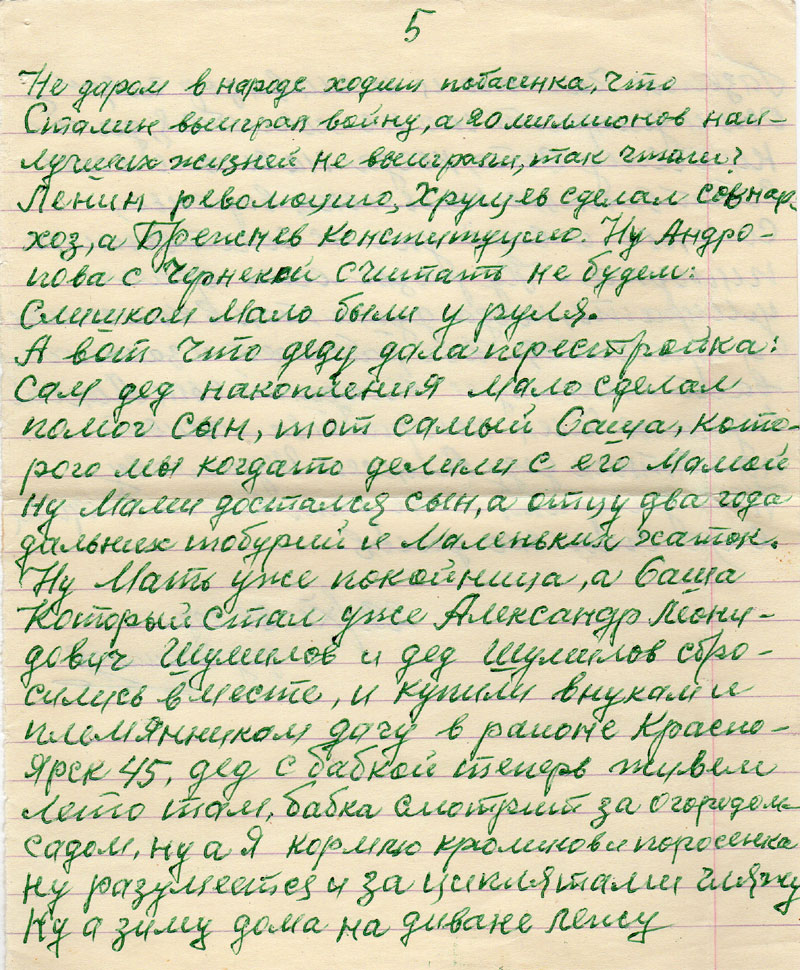 5
Не даром в народе ходит побасенка, что
Сталин выиграл войну, а 20 миллионов наи-
лучших жизней не выиграли, так чтоли?
Ленин революцию, Хрущев сделал совнар-
хоз, а Брежнев Конституцию. Ну Андро-
пова с Чернекой считать не будем:
слишком мало были у руля.
А вот что деду дала перестройка:
Сам дед накопления мало сделал
помог сын, тот самый Саша, кото-
рого мы когдато делили с его мамой
ну маме достался сын, а отцу два года
дальних и маленьких хаток.
Ну Мать уже покойница, а Саша
Который стал уже Александр Леони-
дович Шумилов и дед Шумилов сбро-
сились вместе, и купили внукам и
племянникам дачу в районе Красно-
ярск 45, дед с бабкой теперь живем
лето там, бабка смотрит за огородом
садом, ну а я кормлю кроликов и поросенка
ну разумеется и за циплятами гляжу
Ну а зиму дома на диване лежу